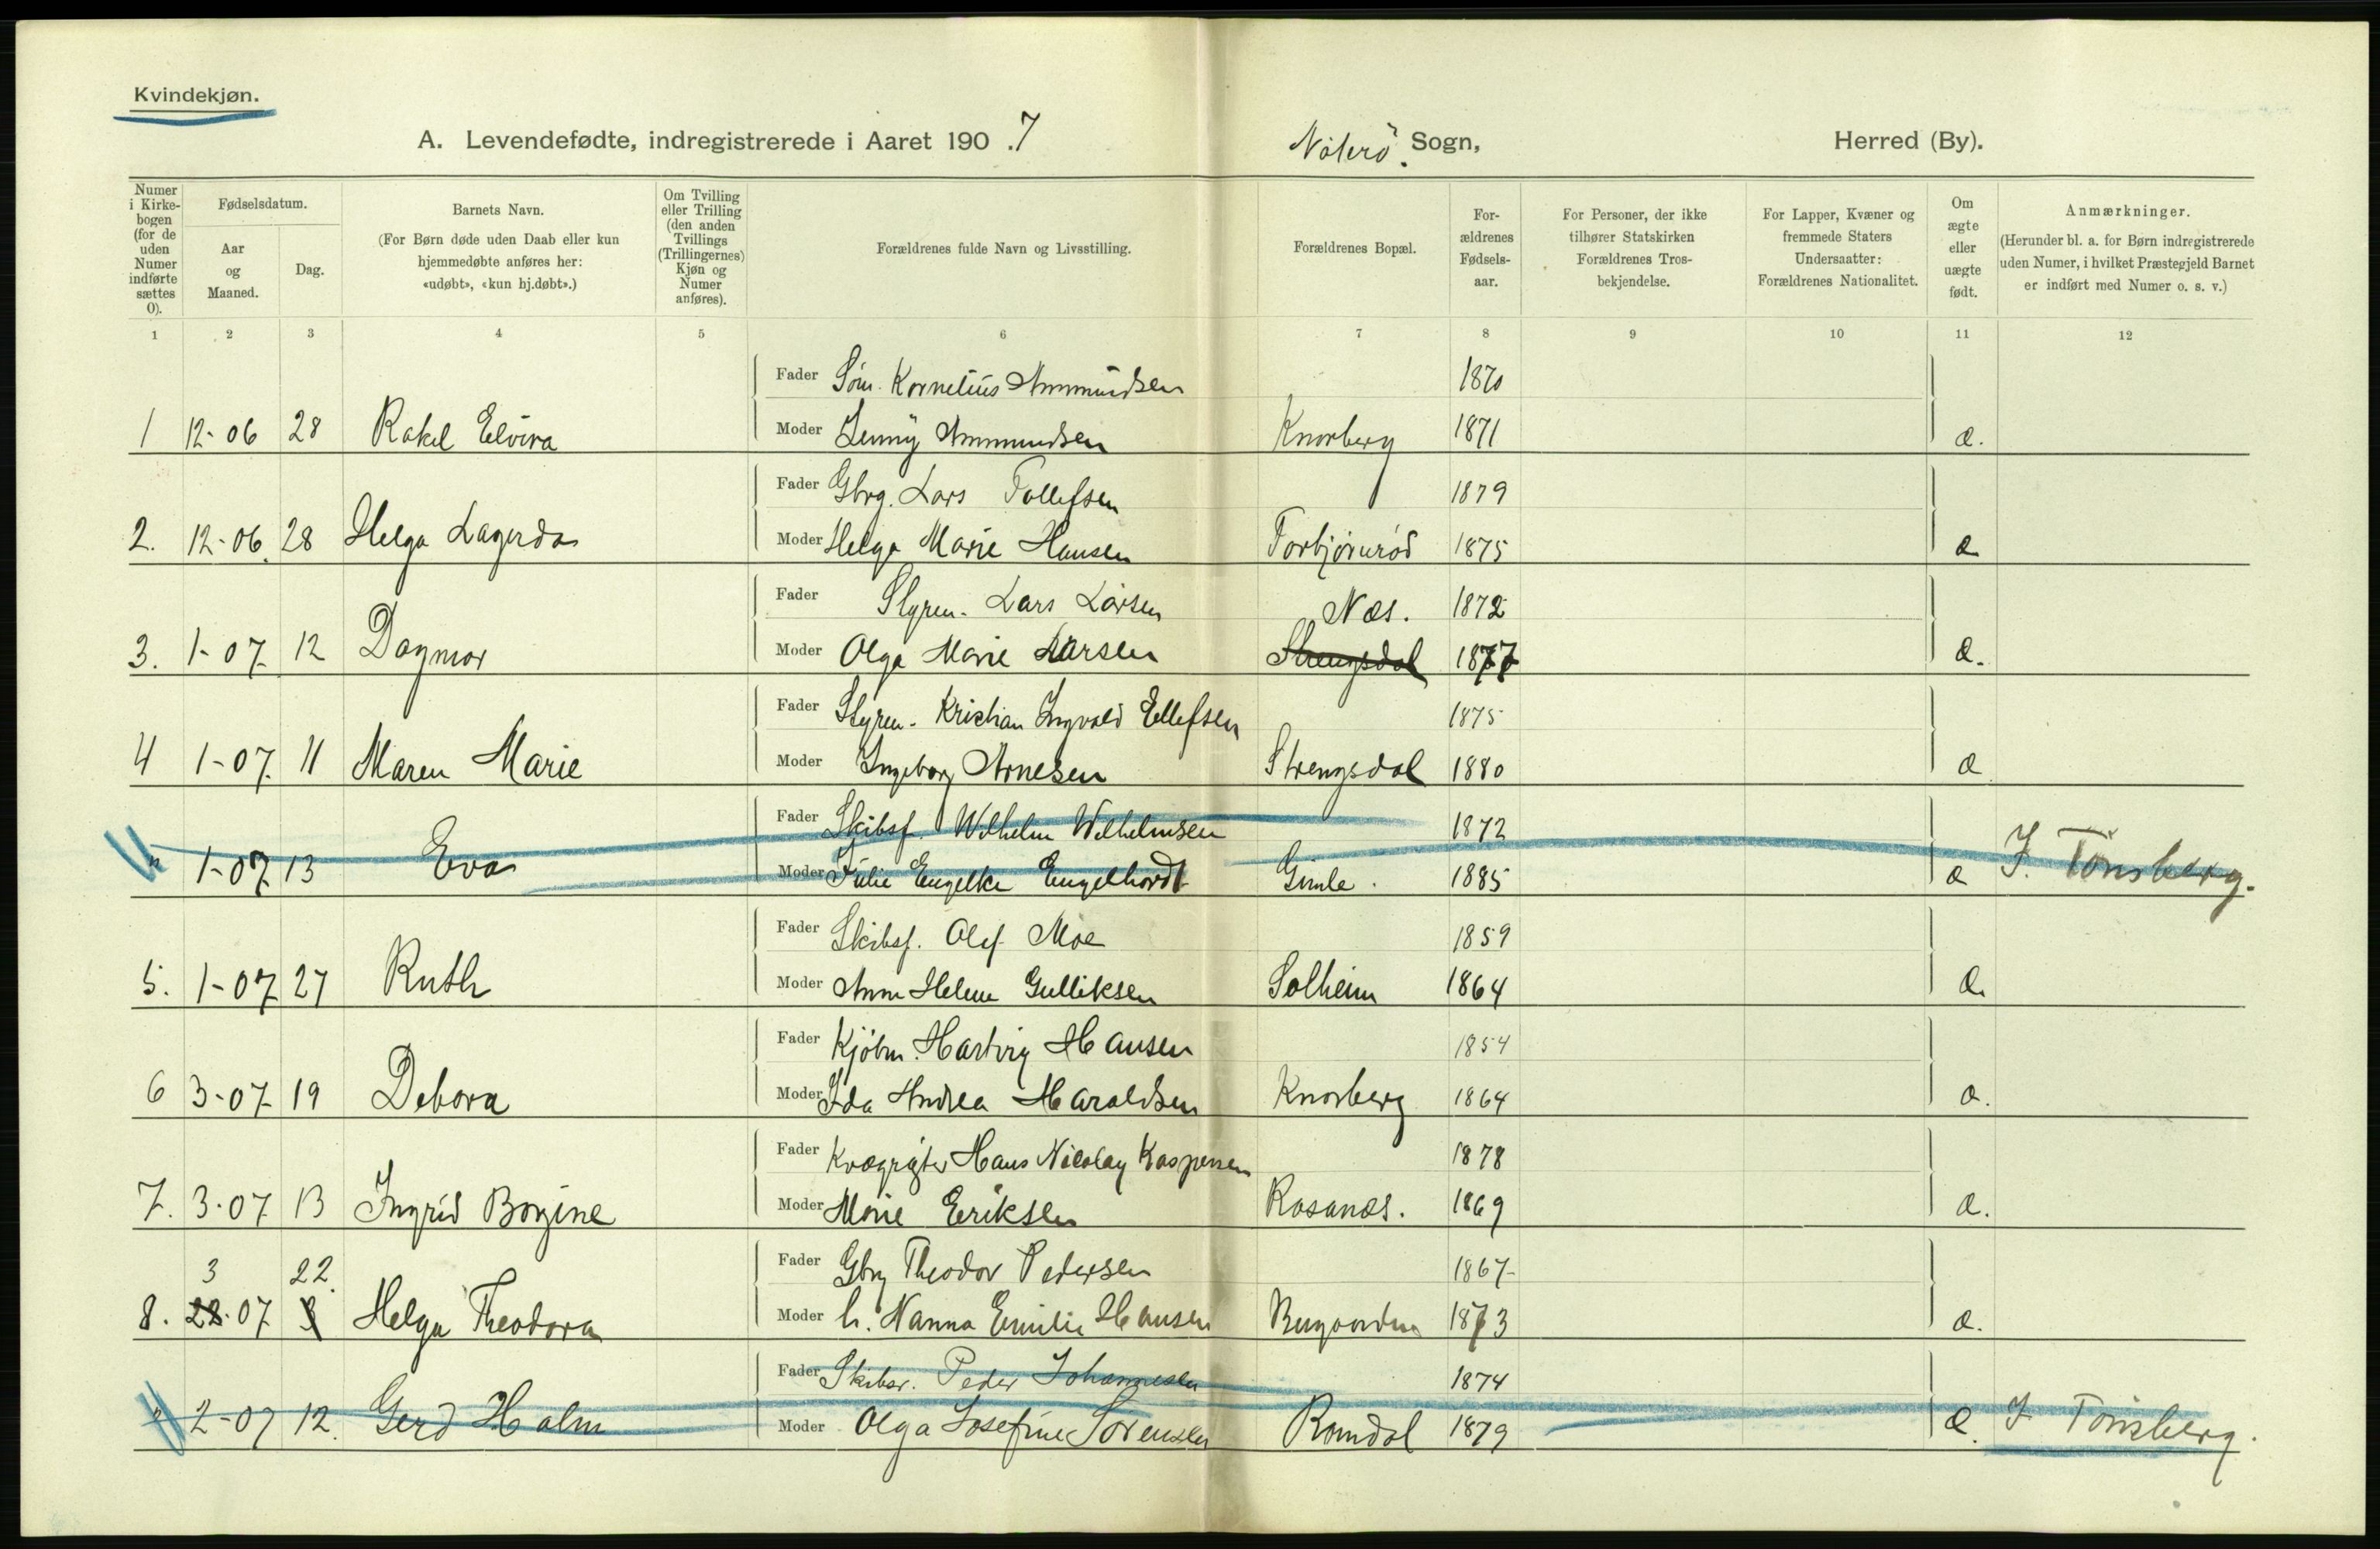 Kvindekjøn.
A. Levendefødte, indregistrerede i Aaret 190.7
Nøterø. Sogn, Herred (By).
Numer i Kirke-bogen (for de uden Numer indførte sættes 0).
Fødselsdatum.
Aar og Maaned.
Dag.
Barnets Navn.
(For Børn døde uden Daab eller kun hjemmedøbte anføres her: «udøbt», «kun hj.døbt».)
Om Tvilling eller Trilling (den anden Tvillings (Trillingernes) Kjøn og Numer anføres).
Forældrenes fulde Navn og Livsstilling.
Forældrenes Bopæl.
For-ældrenes Fødsels-aar.
For Personer, der ikke tilhører Statskirken Forældrenes Tros-bekjendelse.
For Lapper, Kvæner og fremmede Staters Undersaatter: Forældrenes Nationalitet.
Om ægte eller uægte født.
Anmærkninger.
(Herunder bl. a. for Børn indregistrerede uden Numer, i hvilket Præstegjeld Barnet er indført med Numer o. s. v.)
1 2 3 4 5 6 7 8 9 10 11 12
Fader Søm. Kornelius Ammundsen 1870
1 12-06 28 Rakel Elvira Moder Jenny Ammundsen Knarberg 1871 æ.
Fader Gbrg. Lars Tollefsen 1879
2. 12-06. 28 Helga Lagerda Moder Helga Marie Hansen Torbjørnrød 1875 æ
Fader Styrm. Lars Larsen Næs. 1872
3. 1-07 12 Dagmar Moder Olga Marie Larsen Strengsdal 1877 æ.
Fader Styrm. Kristian Ingvald Ellefsen 1875
4 1-07. 11 Maren Marie Moder Ingeborg Arnesen Strengsdal 1880 æ
Fader Skibsf. Wilhelm Wilhelmsen 1872
" 1-07 13 Eva Moder Julie Engelke Engelhardt Gimle. 1885 æ I. Tønsberg.
Fader Skibsf. Olaf Moe 1859
5. 1-07 27 Ruth Moder Anne Helene Gulliksen Solheim 1864 æ
Fader Kjøbm. Hartvig Hansen 1854
6 3-07 19 Debora Moder Ida Andrea Haraldsen Knarberg 1864 æ.
Fader Kvægrøgter Hans Nicolay Kaspersen 1878
7. 3-07 13 Ingrid Borgine Moder Marie Eriksen Rosanæs. 1869 æ.
3 22. Fader Gbrg Theodor Pedersen 1867
8. 22-07 3 Helga Theodora Moder h. Nanna Emilie Hansen 1873 æ.
Fader Skibsr. Peder Johannesen 1874
" 2-07 12. Gerd Holm Moder Olga Josefine Sørensen Ramdal 1879 æ. I Tønsberg.